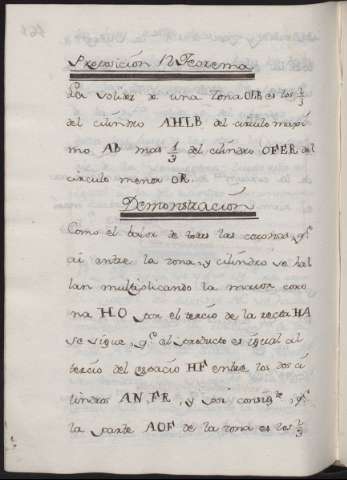 Proposición 12 Teorema
La solidez de una Zona OLB es los 2/3
del cilindro AHLB del circulo maxi
mo AB mas 1/3 del cilindro OFER del
circulo menor OR.
Demonstración
Como el valor de todas las coronas, q.e
ai entre la zona, y cilindro se hal
lan multiplicando la maior coro
na HO por el tercio de la recta HA
se sigue, q.e el producto es igual al
tercio del espacio HF entre los dos ci
lindros AN, FR, y por consig.te, q.e
la parte AOF de la zona es los 2/3